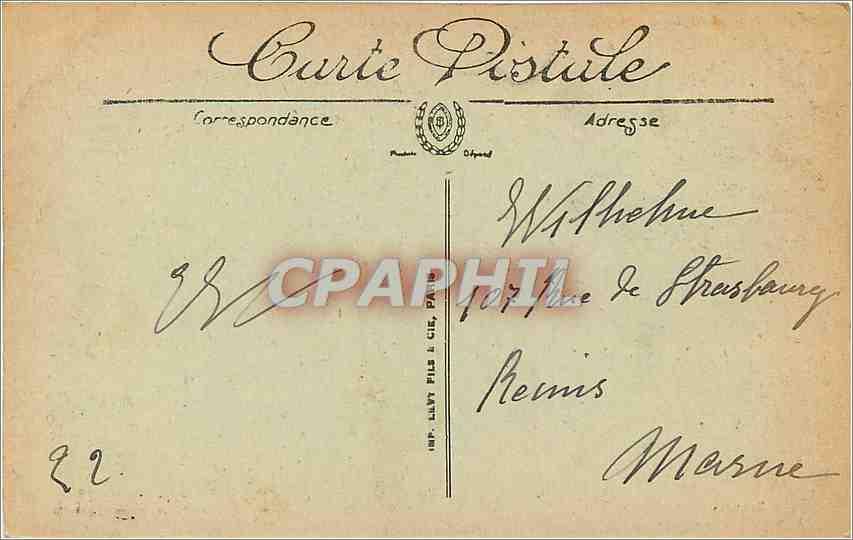 Carte Postale
Correspondance
Adresse
Produits Déposé
Wilhelme
107 Rue de Strasbourg
Reims
Marne
CPAPHIL
IMP. LEVY FILS & CIE, PARIS
22.